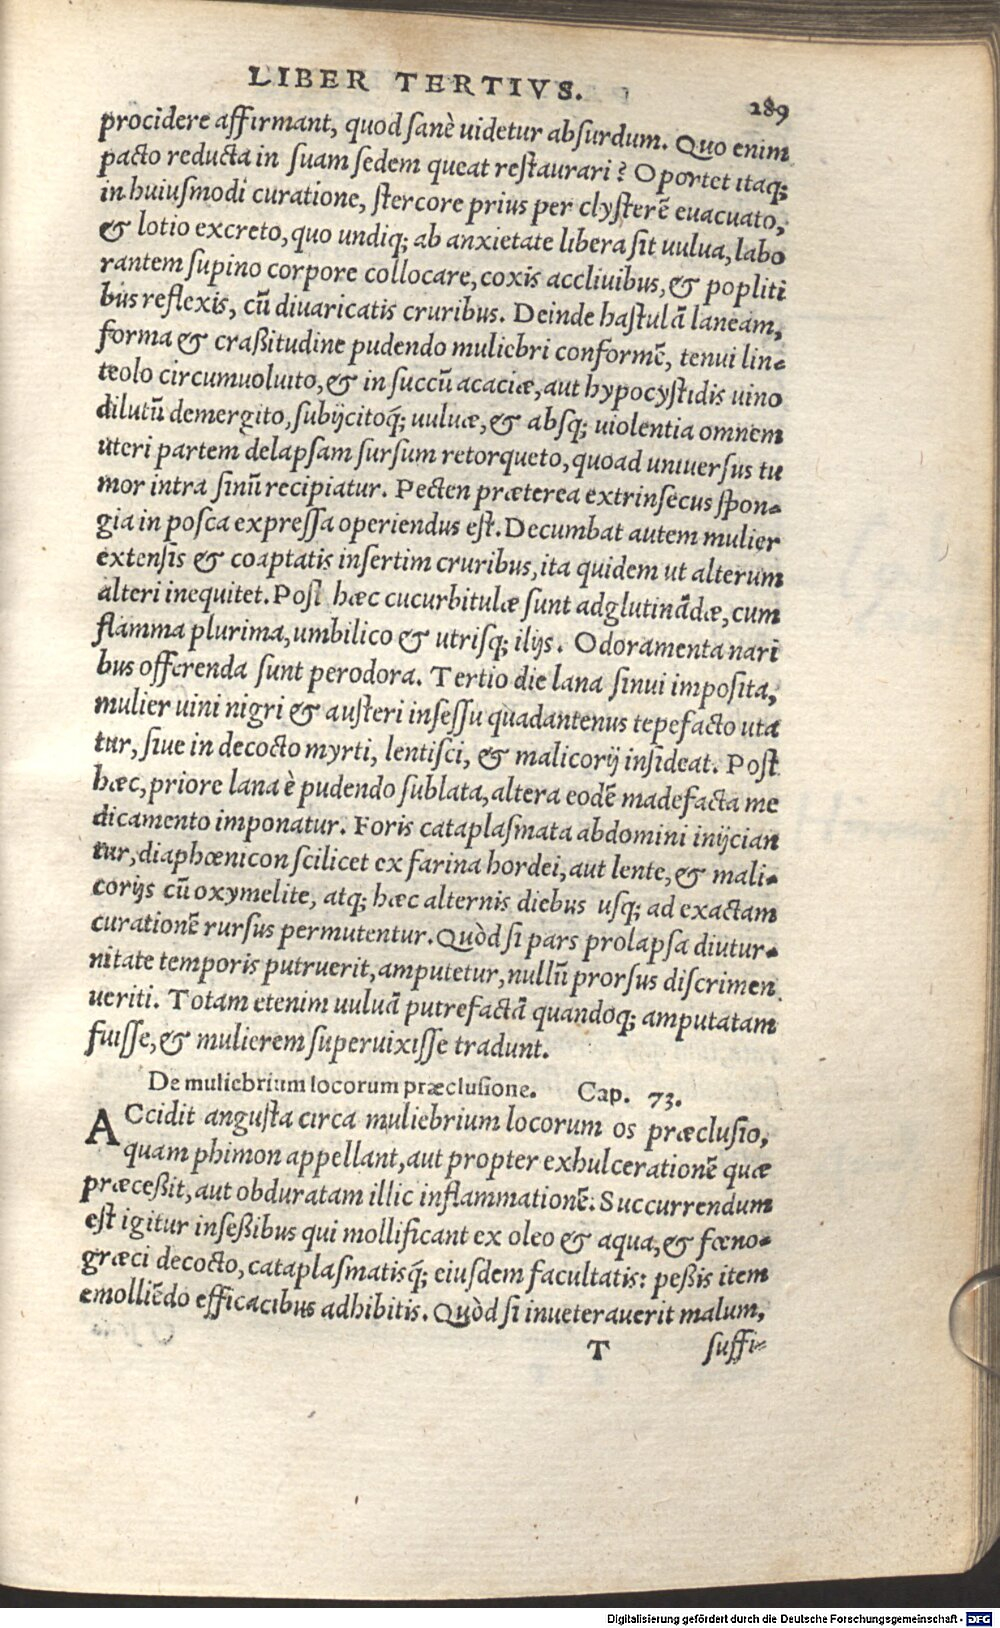 LIBER TERTIVS.
289
procidere affirmant, quod sanè uidetur absurdum. Quo enim
pacto reducta in suam sedem queat restaurari? Oportet itaq;
in huiusmodi curatione, stercore prius per clysterẽ euacuato,
& lotio excreto, quo undiq; ab anxietate libera sit uulua, labo
rantem supino corpore collocare, coxis accliuibus, & popliti
bus reflexis, cũ diuaricatis cruribus. Deinde hastulã laneam,
forma & craßitudine pudendo muliebri conformẽ, tenui lin-
teolo circumuoluito, & in succũ acaciæ, aut hypocystidis uino
dilutũ demergito, subijcitoq́; uuluæ, & absq; uiolentia omnem
uteri partem delapsam sursum retorqueto, quoad uniuersus tu
mor intra sinũ recipiatur. Pecten præterea extrinsecus spon-
gia in posca expressa operiendus est. Decumbat autem mulier
extensis & coaptatis insertim cruribus, ita quidem ut alterum
alteri inequitet. Post hæc cucurbitulæ sunt adglutinãdæ, cum
flamma plurima, umbilico & utrisq; ilijs. Odoramenta nari
bus offerenda sunt perodora. Tertio die lana sinui imposita,
mulier uini nigri & austeri insessu quadantenus tepefacto uta
tur, siue in decocto myrti, lentisci, & malicorij insideat. Post
hæc, priore lana è pudendo sublata, altera eodẽ madefacta me
dicamento imponatur. Foris cataplasmata abdomini inijcian
tur, diaphœnicon scilicet ex farina hordei, aut lente, & mali-
corijs cũ oxymelite, atq; hæc alternis diebus usq; ad exactam
curationẽ rursus permutentur. Quòd si pars prolapsa diutur-
nitate temporis putruerit, amputetur, nullũ prorsus discrimen
ueriti. Totam etenim uuluã putrefactã quandoq; amputatam
fuisse, & mulierem superuixisse tradunt.
De muliebrium locorum præclusione. Cap. 73.
ACcidit angusta circa muliebrium locorum os præclusio,
quam phimon appellant, aut propter exhulcerationẽ quæ
præceßit, aut obduratam illic inflammationẽ. Succurrendum
est igitur inseßibus qui mollificant ex oleo & aqua, & fœno-
græci decocto, cataplasmatisq́; eiusdem facultatis: peßis item
emolliẽdo efficacibus adhibitis. Quòd si inueterauerit malum,
T suffi-
Digitalisierung gefördert durch die Deutsche Forschungsgemeinschaft - DFG